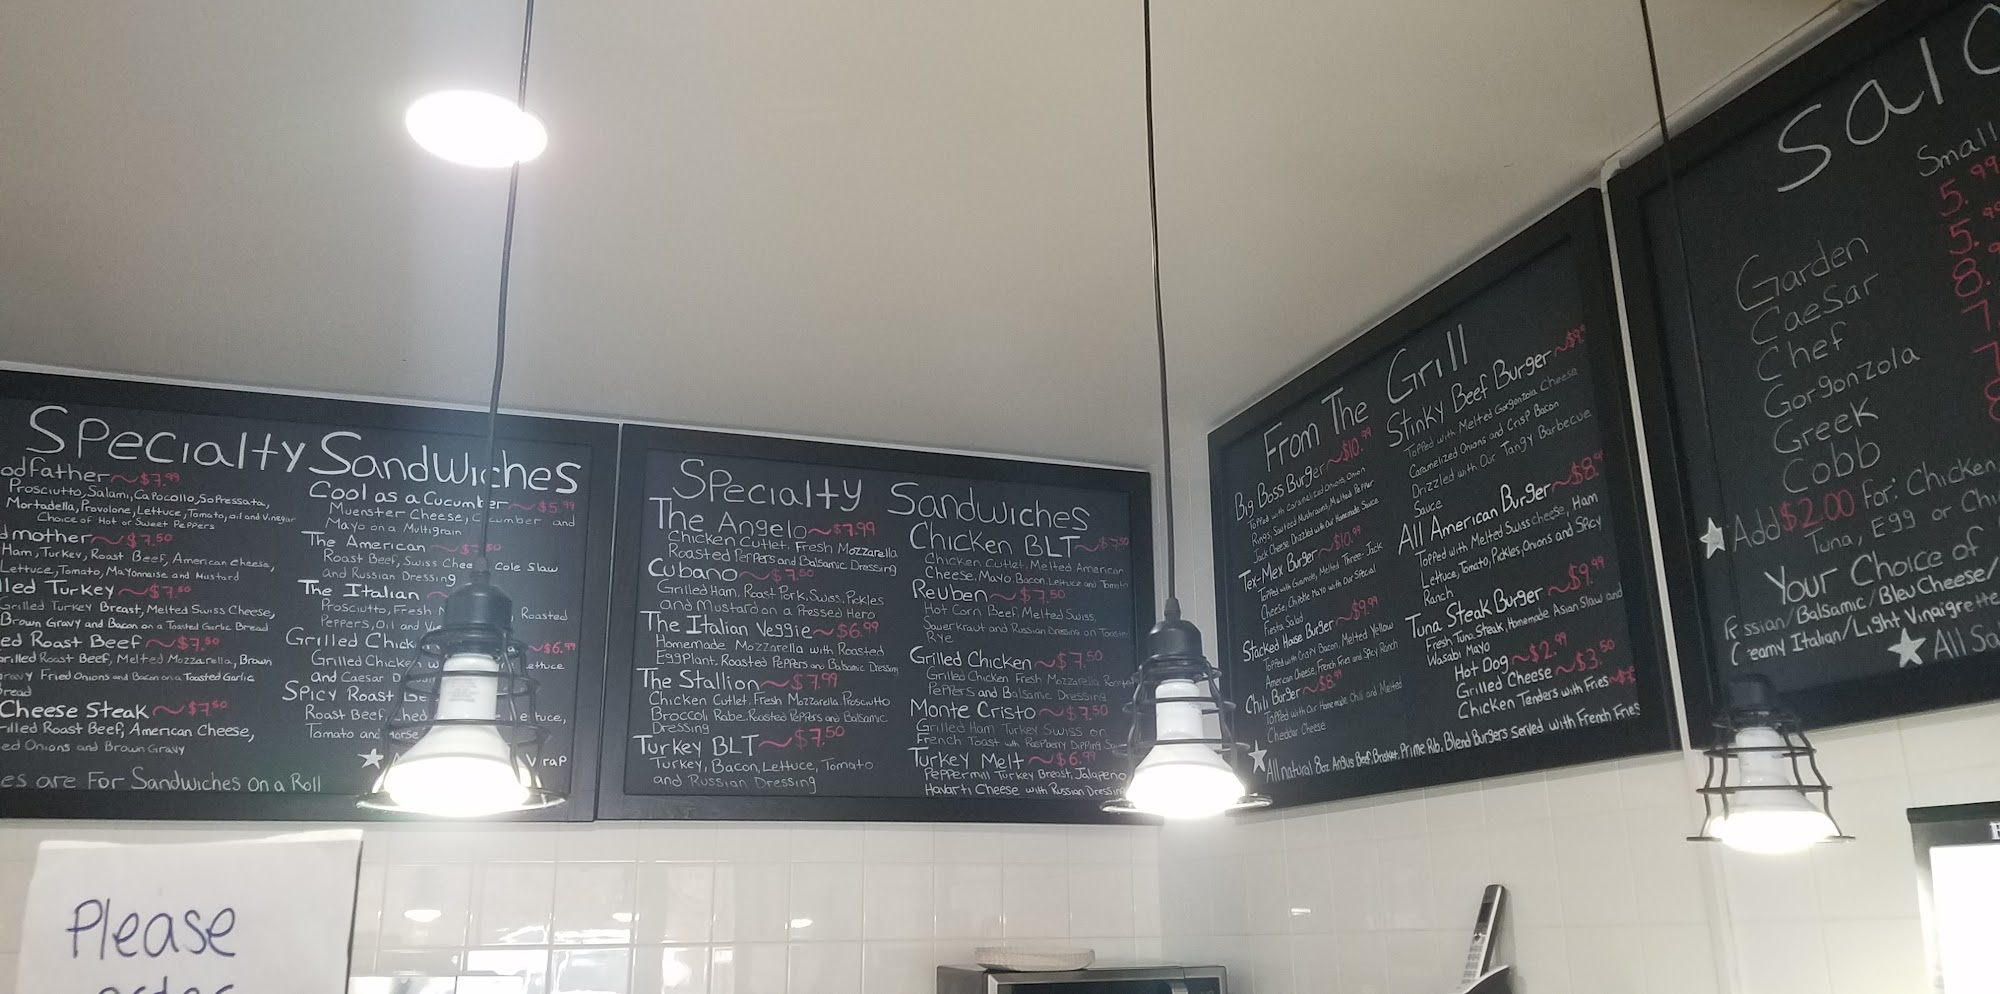 Specialty Sandwiches
odfather ~ $7.99
Prosciutto, Salami, Capocollo, Sopressata,
Mortadella, Provolone, Lettuce, Tomato, oil and Vinegar
Choice of Hot or Sweet Peppers
dmother ~ $7.50
Ham, Turkey, Roast Beef, American cheese,
Lettuce, Tomato, Mayonnaise and Mustard
lled Turkey ~ $7.50
Grilled Turkey Breast, Melted Swiss Cheese,
Brown Gravy and Bacon on a Toasted Garlic Bread
ed Roast Beef ~ $7.50
rilled Roast Beef, Melted Mozzarella, Brown
ravy Fried Onions and Bacon on a Toasted Garlic
read
Cheese Steak ~ $7.50
illed Roast Beef, American Cheese,
ed Onions and Brown Gravy
es are For Sandwiches On a Roll
Cool as a Cucumber ~ $5.99
Muenster Cheese, C cumber and
Mayo on a Multigrain
The American ~ $7.50
Roast Beef, Swiss Chee Cole Slaw
and Russian Dressing
The Italian ~
Prosciutto, Fresh Roasted
Peppers, Oil and Vi
Grilled Chick ~ $6.99
Grilled Chicke ettuce
and Caesar D
Spicy Roast Be
Roast Beef, ched e tuce,
Tomato and Horse
wrap
Specialty Sandwiches
The Angelo ~ $7.99
Chicken Cutlet, Fresh Mozzarella
Roasted Peppers and Balsamic Dressing
Cubano ~ $7.50
Grilled Ham, Roast Pork, Swiss, Pickles
and Mustard on a Pressed Hero
The Italian Veggie ~ $6.99
Homemade Mozzarella with Roasted
Eggplant, Roasted Peppers and Balsamic Dressing
The Stallion ~ $7.99
Chicken Cutlet, Fresh Mozzarella, Proscuitto
Broccoli Rabe, Roasted Peppers and Balsamic
Dressing
Turkey BLT ~ $7.50
Turkey, Bacon, Lettuce, Tomato
and Russian Dressing
Chicken BLT ~ $7.50
Chicken Cutlet, Melted American
Cheese, Mayo Bacon, Lettuce and Tomato
Reuben ~ $7.50
Hot Corn Beef, Melted Swiss,
Sauerkraut and Russian Dressing on Toasted
Rye
Grilled Chicken ~ $7.50
Grilled Chicken Fresh Mozzarella Roasted
Peppers and Balsamic Dressing
Monte Cristo ~ $7.50
Grilled Ham Turkey Swiss on
French Toast with Raspberry Dipping Sa
Turkey Melt ~ $6.99
Peppermill Turkey Breast, Jalapeno
Havarti Cheese with Russian Dressing
From The Grill
Big Boss Burger ~ $10.99
Topped with Caramelized Onions Onion
Rings, Sautéed Mushrooms, Melted Pepper
Jack Cheese Drizzled with Our Homemade Sauce
Tex-Mex Burger ~ $10.99
Topped with Guacamole, Melted Three-Jack
Cheese, Chipotle Mayo with Our Special
Fiesta Salad
Stacked House Burger ~ $9.99
Topped with Crispy Bacon, Melted Yellow
American Cheese, French Fries and Spicy Ranch
Chili Burger ~ $8.99
Topped with Our Homemade Chili and Melted
Cheddar Cheese
Stinky Beef Burger ~ $9.9
Topped with Melted Gorgonzola Cheese
Caramelized Onions and Crisp Bacon
Drizzled with Our Tangy Barbecue
Sauce
All American Burger ~ $8.9
Topped with Melted Swiss cheese, Ham
Lettuce, Tomato, Pickles, Onions and Spicy
Ranch
Tuna Steak Burger ~ $9.99
Fresh Tuna Steak, Homemade Asian Slaw and
Wasabi Mayo
Hot Dog ~ $2.99
Grilled Cheese ~ $3.50
Chicken Tenders with Fries
All natural 8oz Angus Beef, Brisket, Prime Rib, Blend Burgers Served with French Fries
Sala
Small
Garden 5.99
Caesar 5.99
Chef 8.
Gorgonzola 7.
Greek
Cobb
Add $2.00 For: Chicken,
Tuna, Egg or Chi
Your Choice of
ssian/Balsamic/BleuCheese/
C eamy Italian/Light Vinaigrette
All Sa
Please